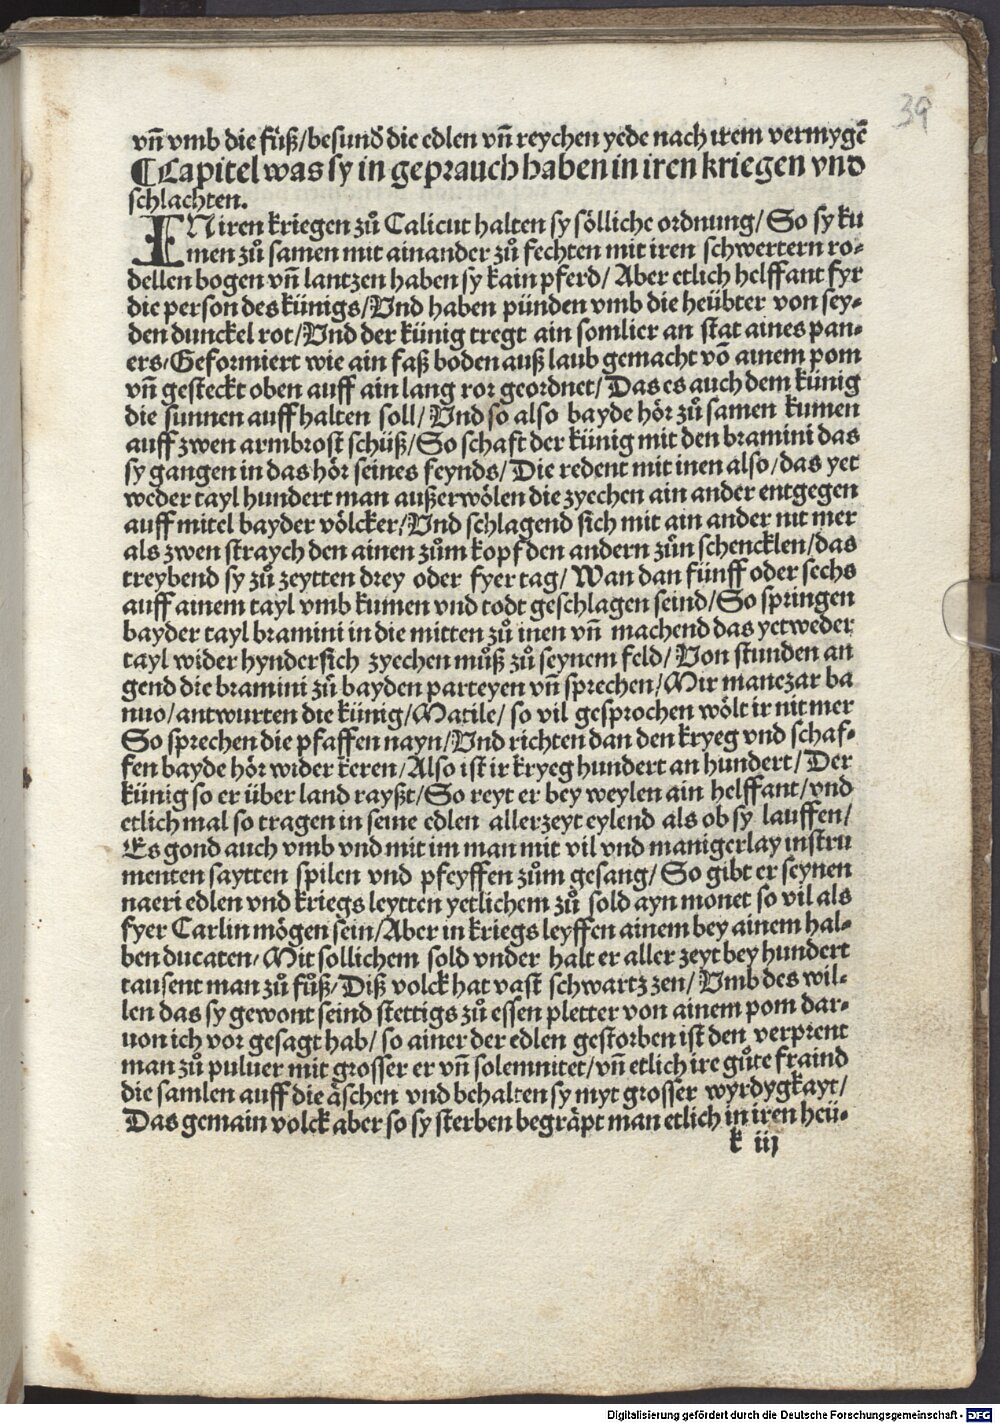 39
vn̄ vmb die füß/besund̄ die edlen vn̄ reychen yede nach irem vermygē
¶Capitel was sy in geprauch haben in iren kriegen vnd
schlachten.
IN iren kriegen zů Calicut halten sy sölliche ordnung/ So sy ku
men zů samen mit ainander zů fechten mit iren schwertern ro-
dellen bogen vn̄ lantzen haben sy kain pferd/ Aber etlich helffant fyr
die person des künigs/Vnd haben pünden vmb die heübter von sey-
den dunckel rot/Vnd der künig tregt ain somlier an stat aines pan-
ers/Geformiert wie ain faß boden auß laub gemacht vō ainem pom
vn̄ gesteckt oben auff ain lang ror geordnet/ Das es auch dem künig
die sunnen auff halten soll/ Vnd so also bayde hör zů samen kumen
auff zwen armbrost schüß/ So schaft der künig mit den bramini das
sy gangen in das hör seines feynds/ Die redent mit inen also/das yet
weder tayl hundert man außerwölen die zyechen ain ander entgegen
auff mitel bayder völcker/Vnd schlagend sich mit ain ander nit mer
als zwen straych den ainen zům kopf den andern zůn schencklen/das
treybend sy zů zeytten drey oder fyer tag/ Wan dan fünff oder sechs
auff ainem tayl vmb kumen vnd todt geschlagen seind/So springen
bayder tayl bramini in die mitten zů inen vn̄ machend das yetweder
tayl wider hyndersich zyechen můß zů seynem feld/ Von stunden an
gend die bramini zů bayden parteyen vn̄ sprechen/Mir manezar ba
nuo/antwurten die künig/Matile/ so vil gesprochen wölt ir nit mer
So sprechen die pfaffen nayn/Vnd richten dan den kryeg vnd schaf-
fen bayde hör wider keren/Also ist ir kryeg hundert an hundert/ Der
künig so er über land rayßt/So reyt er bey weylen ain helffant/vnd
etlich mal so tragen in seine edlen allerzeyt eylend als ob sy lauffen/
Es gond auch vmb vnd mit im man mit vil vnd manigerlay instru
menten saytten spilen vnd pfeyffen zům gesang/ So gibt er seynen
naeri edlen vnd kriegs leytten yetlichem zů sold ayn monet so vil als
fyer Carlin mögen sein/Aber in kriegs leyffen ainem bey ainem hal-
ben ducaten/Mit sollichem sold vnder halt er aller zeyt bey hundert
tausent man zů fůß/Diß volck hat vast schwartz zen/ Vmb des wil-
len das sy gewont seind stettigs zů essen pletter von ainem pom dar-
uon ich vor gesagt hab/ so ainer der edlen gestorben ist den verprent
man zů puluer mit grosser er vn̄ solemnitet/vn̄ etlich ire gůte fraind
die samlen auff die äschen vnd behalten sy myt grosser wyrdygkayt/
Das gemain volck aber so sy sterben begräpt man etlich in iren heü-
k iij
Digitalisierung gefördert durch die Deutsche Forschungsgemeinschaft - DFG